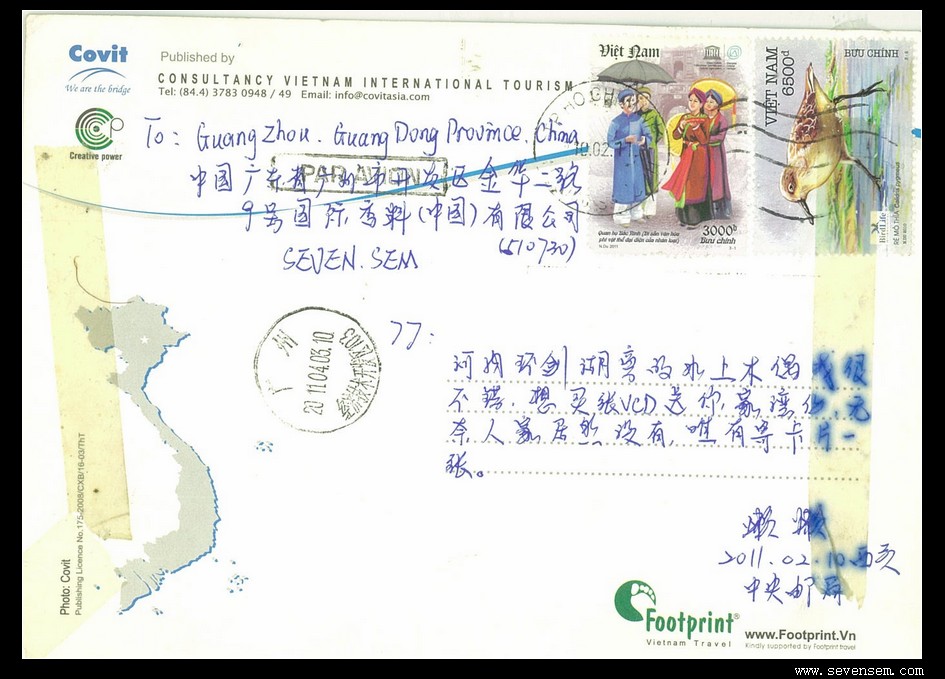 Covit
We are the bridge
Published by
CONSULTANCY VIETNAM INTERNATIONAL TOURISM
Tel: (84.4) 3783 0948 / 49 Email: info@covitasia.com
Creative power
Việt Nam
3000đ
Bưu chính
VIỆT NAM
6500đ
BƯU CHÍNH
BirdLife
To: Guang Zhou. Guang Dong Province. China
PAR AVION
中国广东省广州市开发区金华二路
9号国际香料(中国)有限公司
SEVEN. SEM (510730)
广 州
2011.04.03.10
77:
河内环剑湖旁的水上木偶戏很
不错,想买张VCD送你
奈人家居然没有,唯有寄卡片一
张。
懒懒
2011.02.10西贡
中央邮局
Photo: Covit
Publishing Licence No.175-2008/CXB/16-03/ThT
Footprint®
Vietnam Travel
www.Footprint.Vn
Kindly supported by Footprint travel
www.sevensem.com